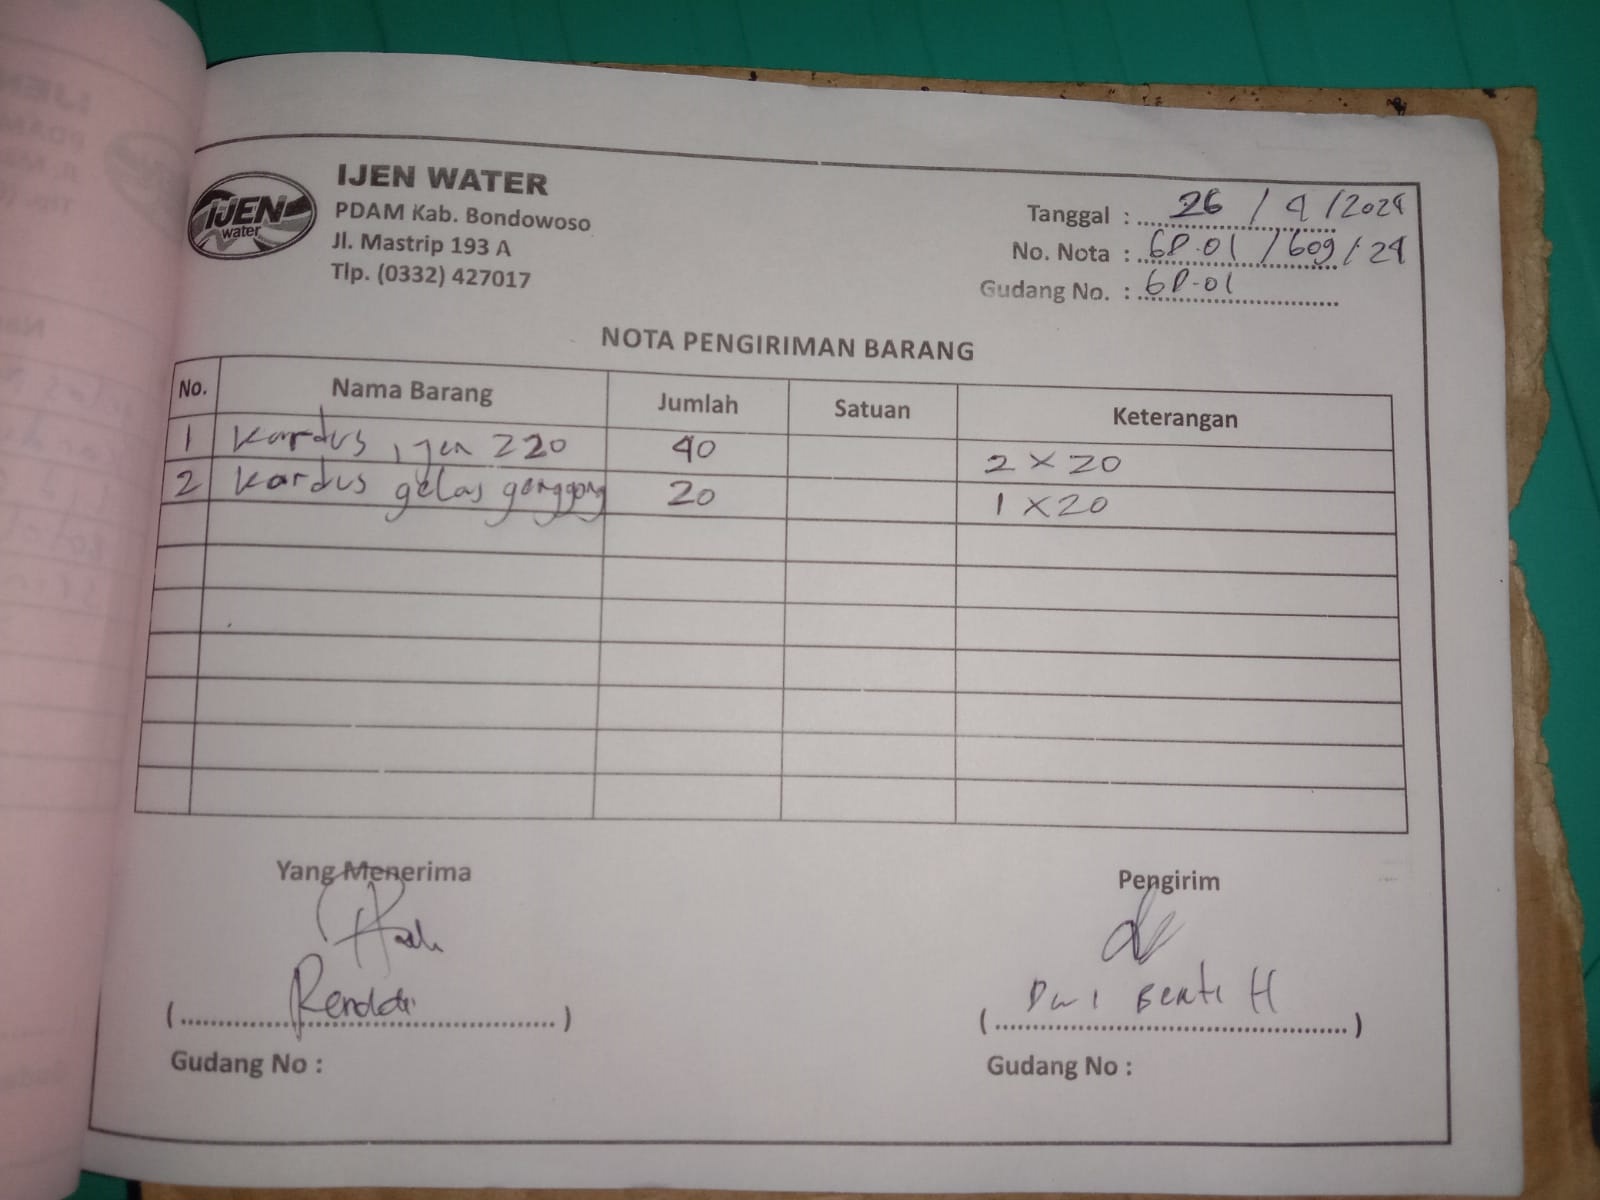 IJEN
water
IJEN WATER
PDAM Kab. Bondowoso
Jl. Mastrip 193 A
Tlp. (0332) 427017
Tanggal : 26 / 4 / 2024
No. Nota : GP-01 / 609 / 24
Gudang No. : GP-01
NOTA PENGIRIMAN BARANG
No. Nama Barang Jumlah Satuan Keterangan
1 Kardus ijen 220 40 2 x 20
2 Kardus gelas gonggong 20 1 x 20
Yang Menerima Pengirim
Renddi Dwi Bekti H
(..........) (..........)
Gudang No : Gudang No :